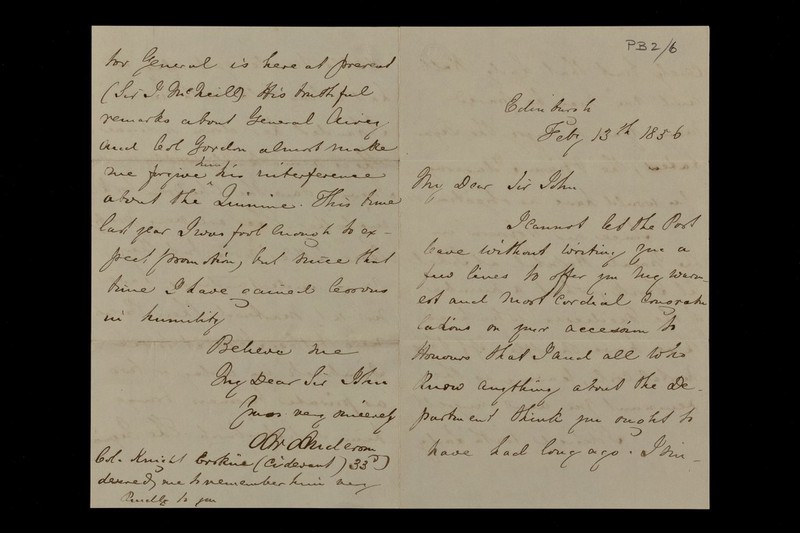 PB2/6
Edinburgh
Feby 13th 1856
My Dear Sir John
I cannot let the Post
leave without writing you a
few lines to offer you my warm-
est and most cordial Congratu
lations on your accession to
Honours that I and all who
know anything about the De-
partment think you ought to
have had long ago. I sin-
tor General is here at present
(Sir J. McNeill) His truthful
remarks about General Airey
and Col Gordon almost make
me forgive him his interference
about the Quinine. This time
last year I was fool enough to ex-
pect promotion, but since that
time I have gained lessons
in humility
Believe me
My Dear Sir John
Yours very sincerely
Anderson
Col. Knight Erskine (Ci devant) 33rd
desired me to remember him very
kindly to you